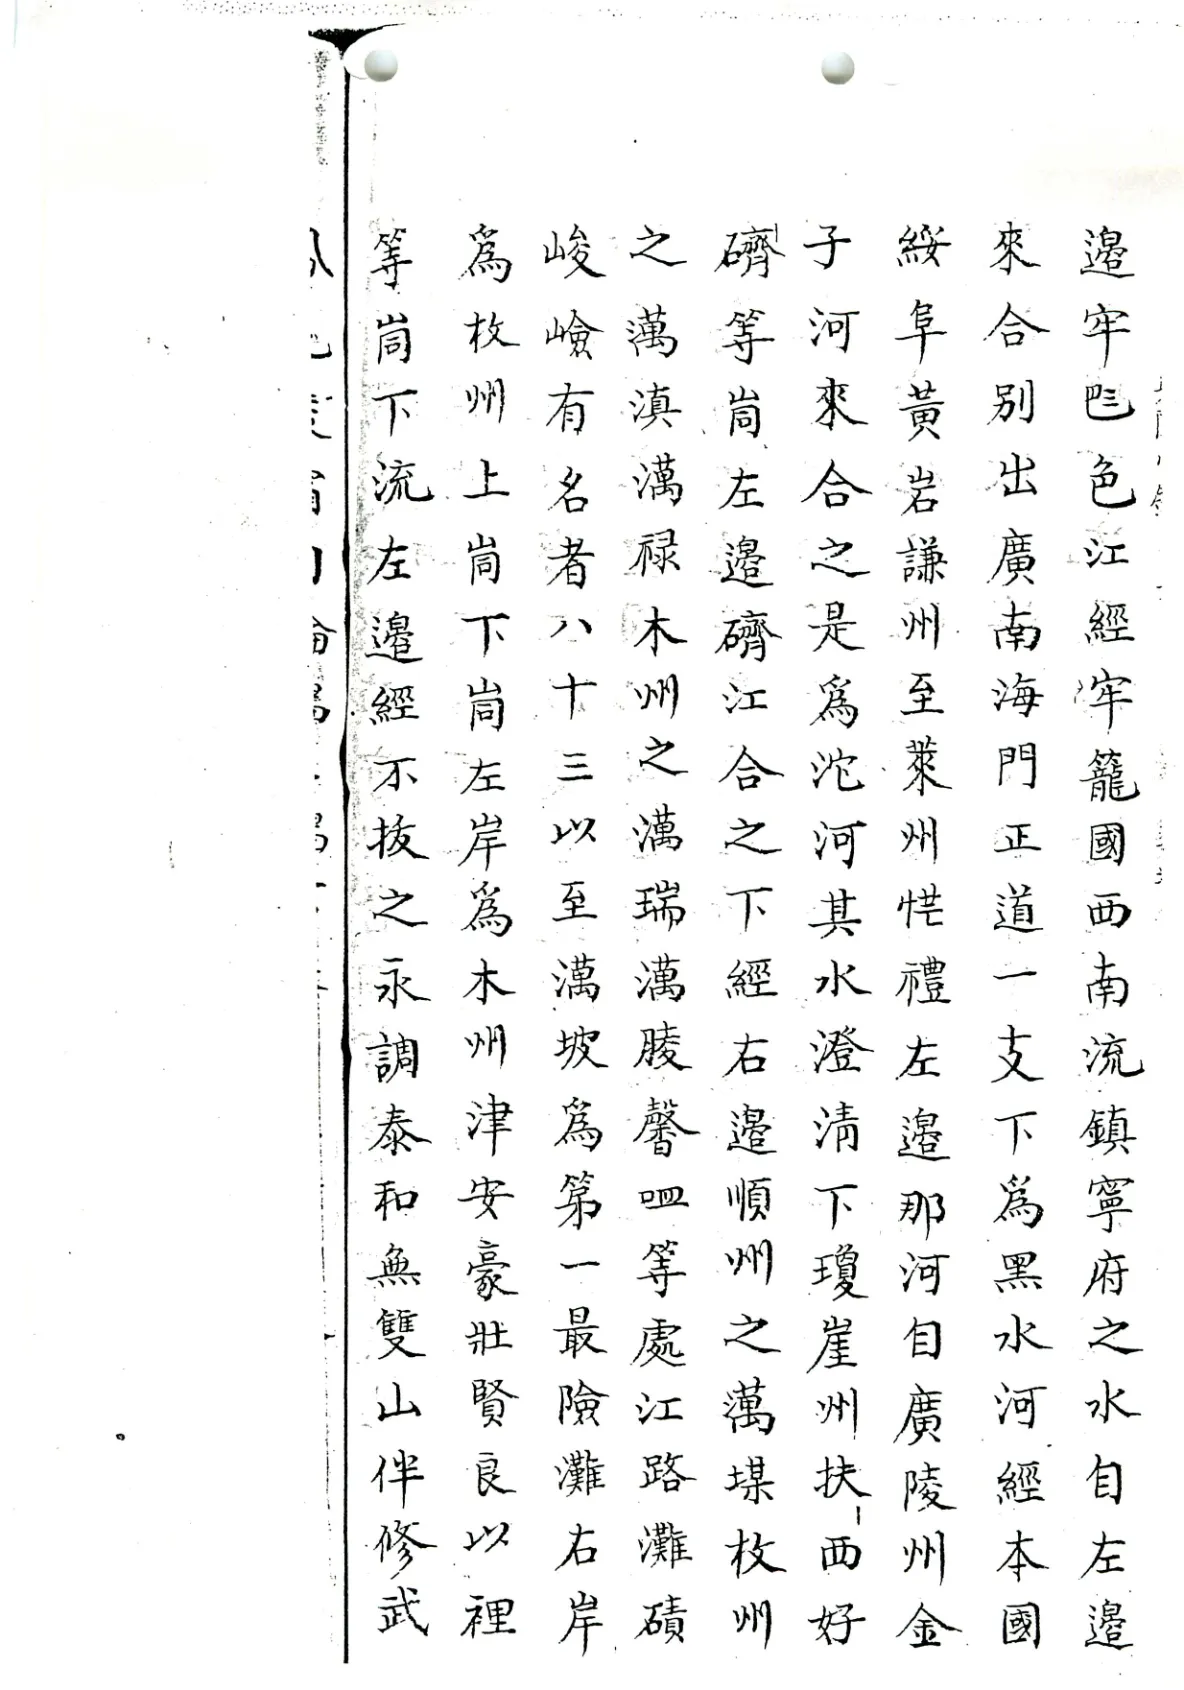 邉牢𠀧色江經牢籠國西南流鎮寧府之水自左邉
來合別出廣南海門正道一支下爲黑水河經本國
綏阜黃岩謙州至萊州恾禮左邉那河自廣陵州金
子河來合之是爲沱河其水澄清下瓊崖州扶西好
𥖐等峝左邉𥖐江合之下經右邉順州之澫堞枚州
之澫滇澫禄木州之澫瑞澫䏰馨𠴓等處江路灘磧
峻嶮有名者八十三以至澫坡爲第一最險灘右岸
爲枚州上峝下峝左岸爲木州津安豪壯賢良以裡
等峝下流左邉經不抜之永調泰和無雙山伴修武